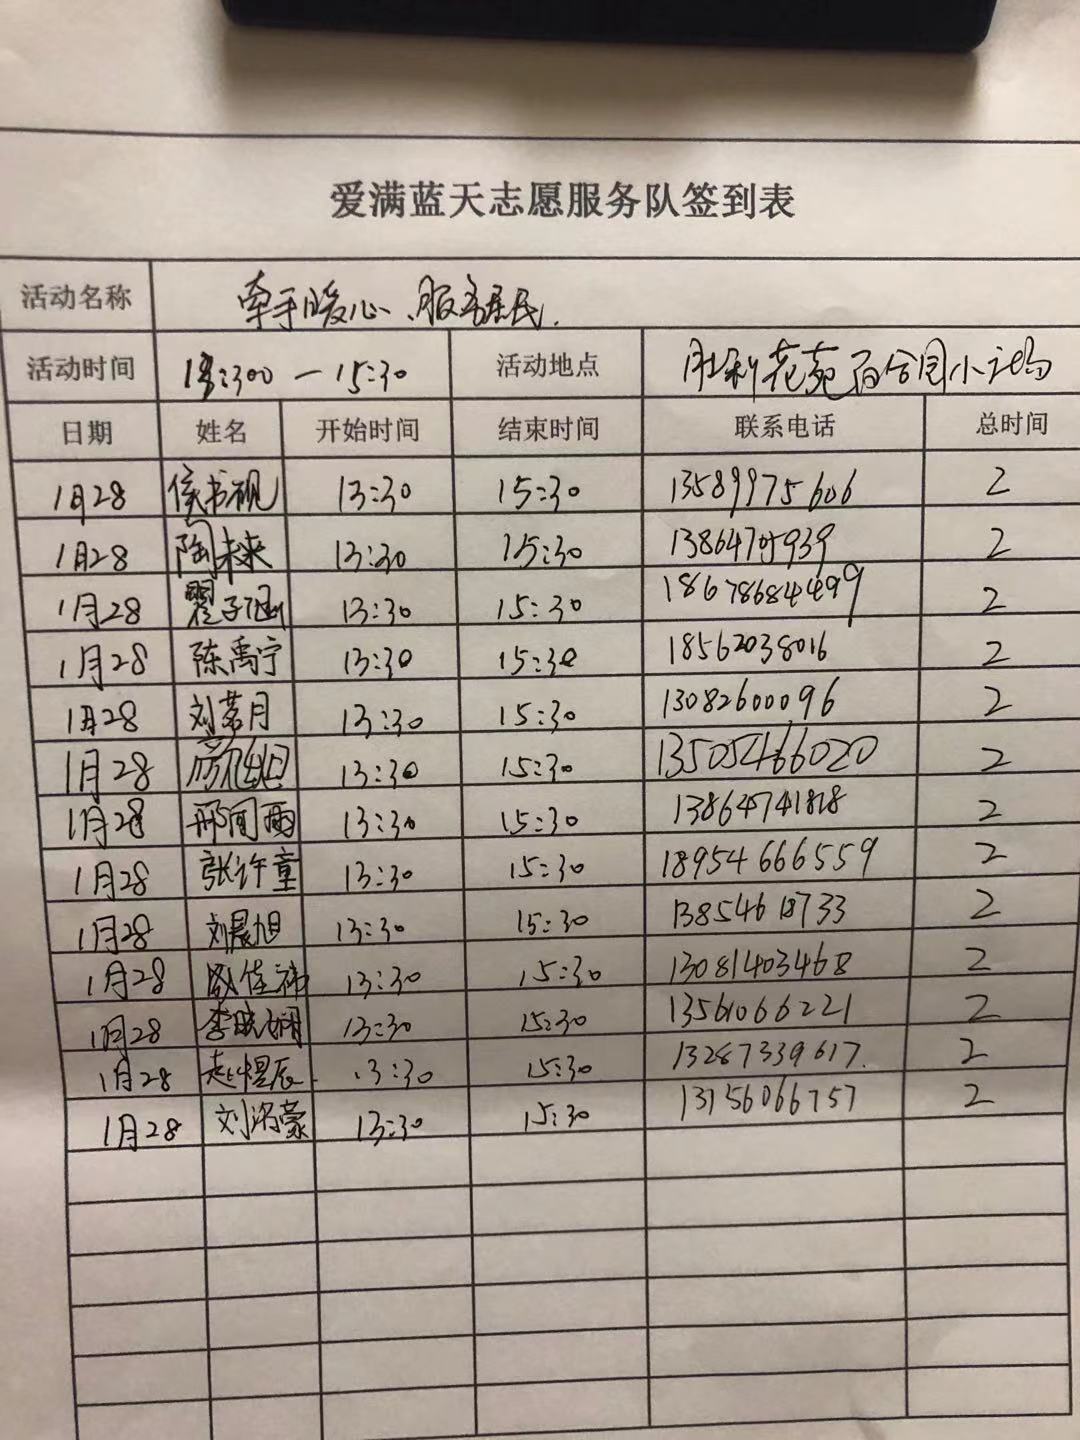 爱满蓝天志愿服务队签到表
活动名称 牵手暖心、服务居民.
活动时间 13:300 — 15:30 活动地点 胜利花苑百合园小广场
日期 姓名 开始时间 结束时间 联系电话 总时间
1月28 侯书砚 13:30 15:30 13589975606 2
1月28 陶未来 13:30 15:30 2
1月28 翟子涵 13:30 15:30 18678684499 2
1月28 陈禹宁 13:30 15:30 18562038016 2
1月28 刘茗月 13:30 15:30 13082600096 2
1月28 13:30 15:30 13505466020 2
1月28 邢闻雨 13:30 15:30 13864741818 2
1月28 张许童 13:30 15:30 18954666559 2
1月28 刘晨旭 13:30 15:30 13854618733 2
1月28 佳祎 13:30 15:30 13081403468 2
1月28 李晓娴 13:30 15:30 13561066221 2
1月28 赵煜辰. 13:30 15:30 13287339617. 2
1月28 刘洺豪 13:30 15:30 13156066757 2